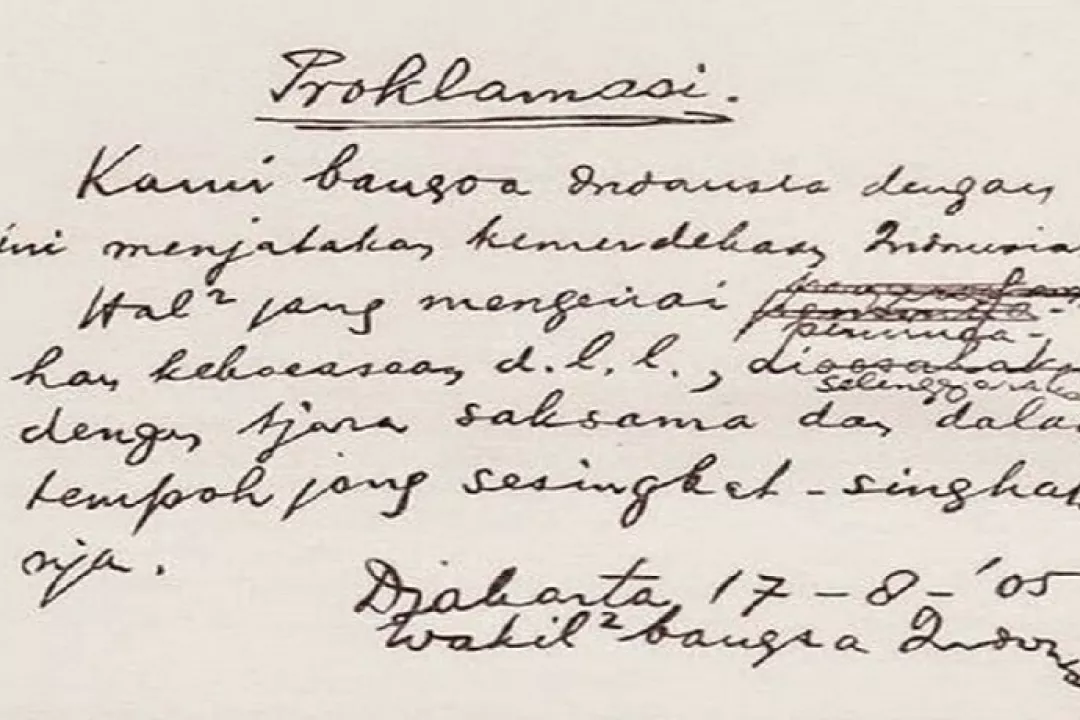 Proklamasi.
Kami bangsa Indonesia dengan
ini menjatakan kemerdekaan Indonesia
Hal² jang mengenai
peminda-
han kekoeasaan d.l.l., dioesahak
selenggarak
dengan tjara saksama dan dala
tempoh jang sesingkat-singkat
nja.
Djakarta, 17 - 8 - '05
Wakil² bangsa Indon